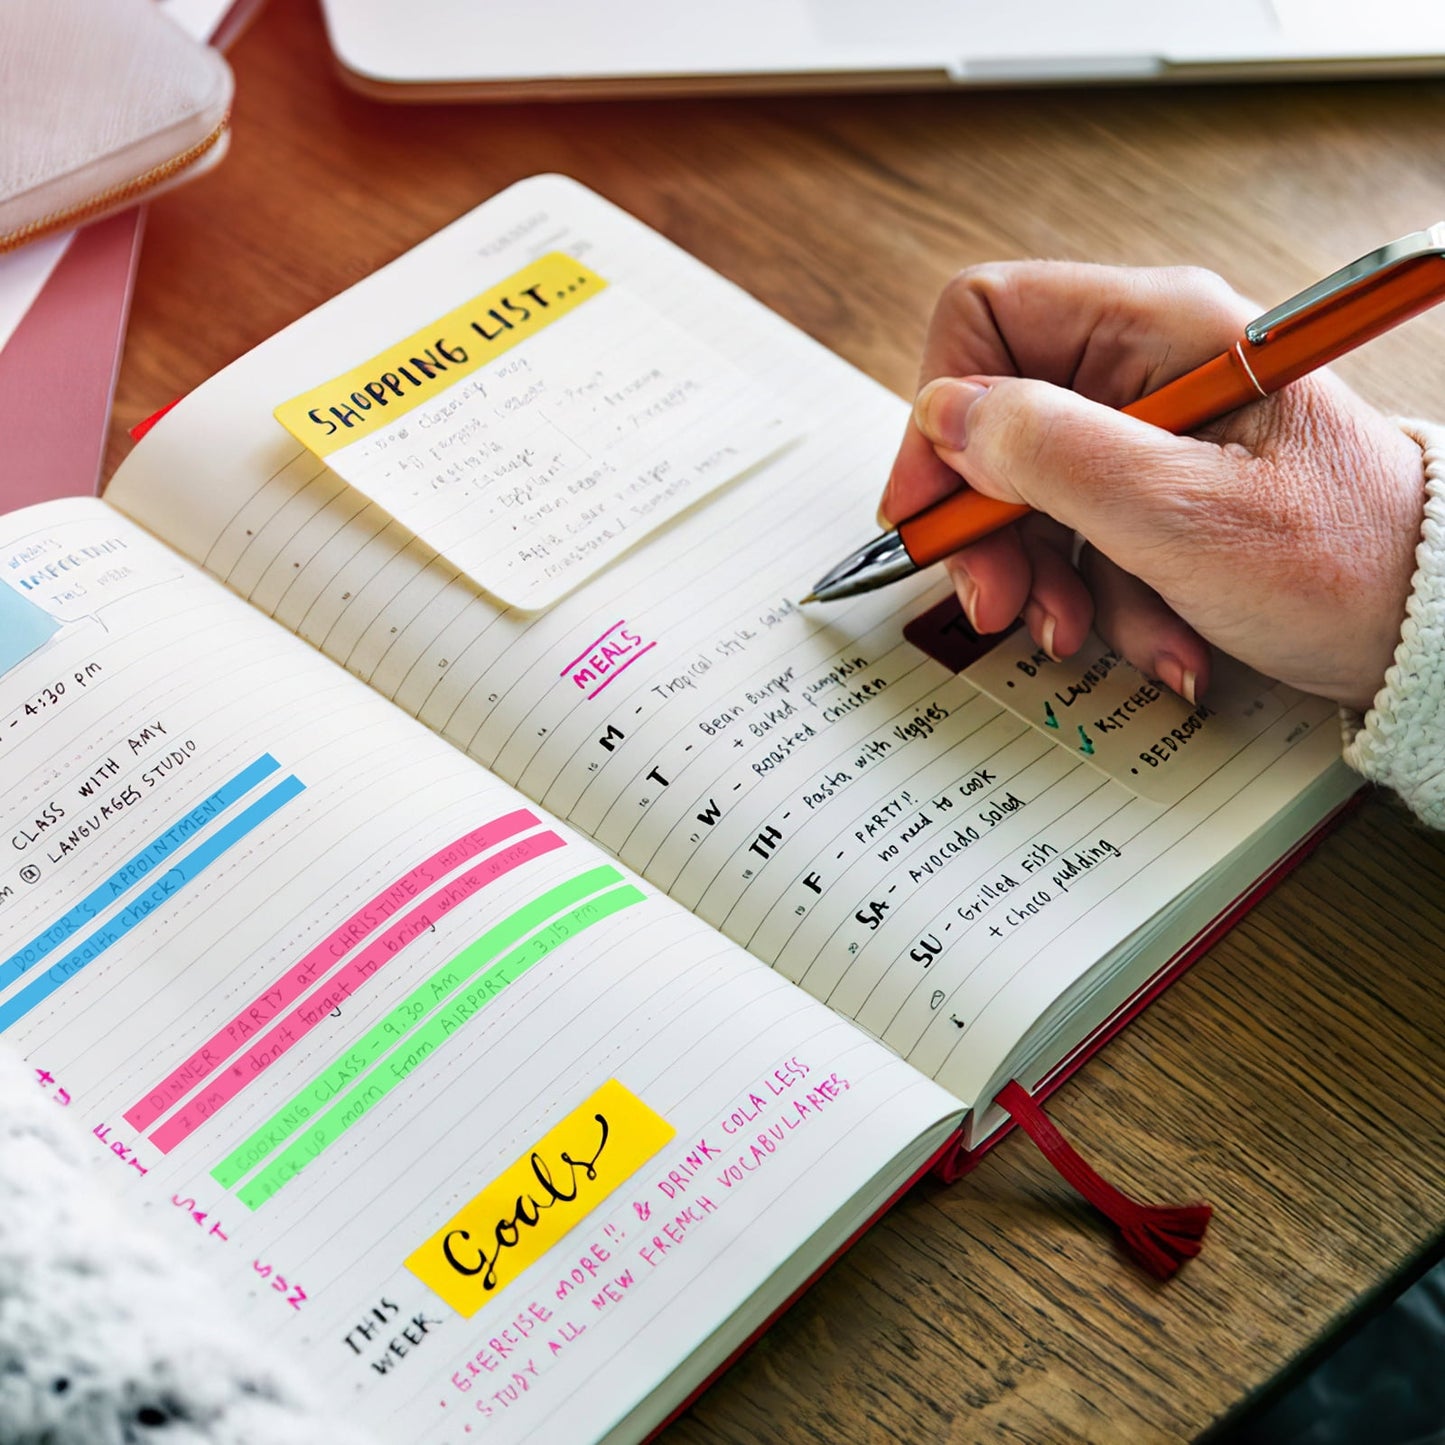 WHAT'S
IMPORTANT
THIS WEEK
- 4:30 PM
CLASS WITH AMY
@ LANGUAGES STUDIO
DOCTOR'S APPOINTMENT
(health check)
THU
FRI
• DINNER PARTY at CHRISTINE'S HOUSE
7 PM * don't forget to bring white wine!
SAT
• COOKING CLASS - 9.30 AM
• PICK UP mom from AIRPORT - 3.15 PM
SUN
THIS
WEEK
Goals
• EXERCISE MORE!! & DRINK COLA LESS
• STUDY ALL NEW FRENCH VOCABULARIES
SHOPPING LIST...
• Cabbage
• Eggplant
• Green beans
- Apple cider vinegar
- Mustard / Tomato paste
MEALS
M - Tropical style salad
T - Bean Burger
+ Baked pumpkin
W - roasted chicken
TH - Pasta with veggies
F - PARTY!!
no need to cook
SA - Avocado salad
SU - Grilled Fish
+ choco pudding
T
• BAT
✓ LAUNDRY
✓ KITCHEN
• BEDROOM